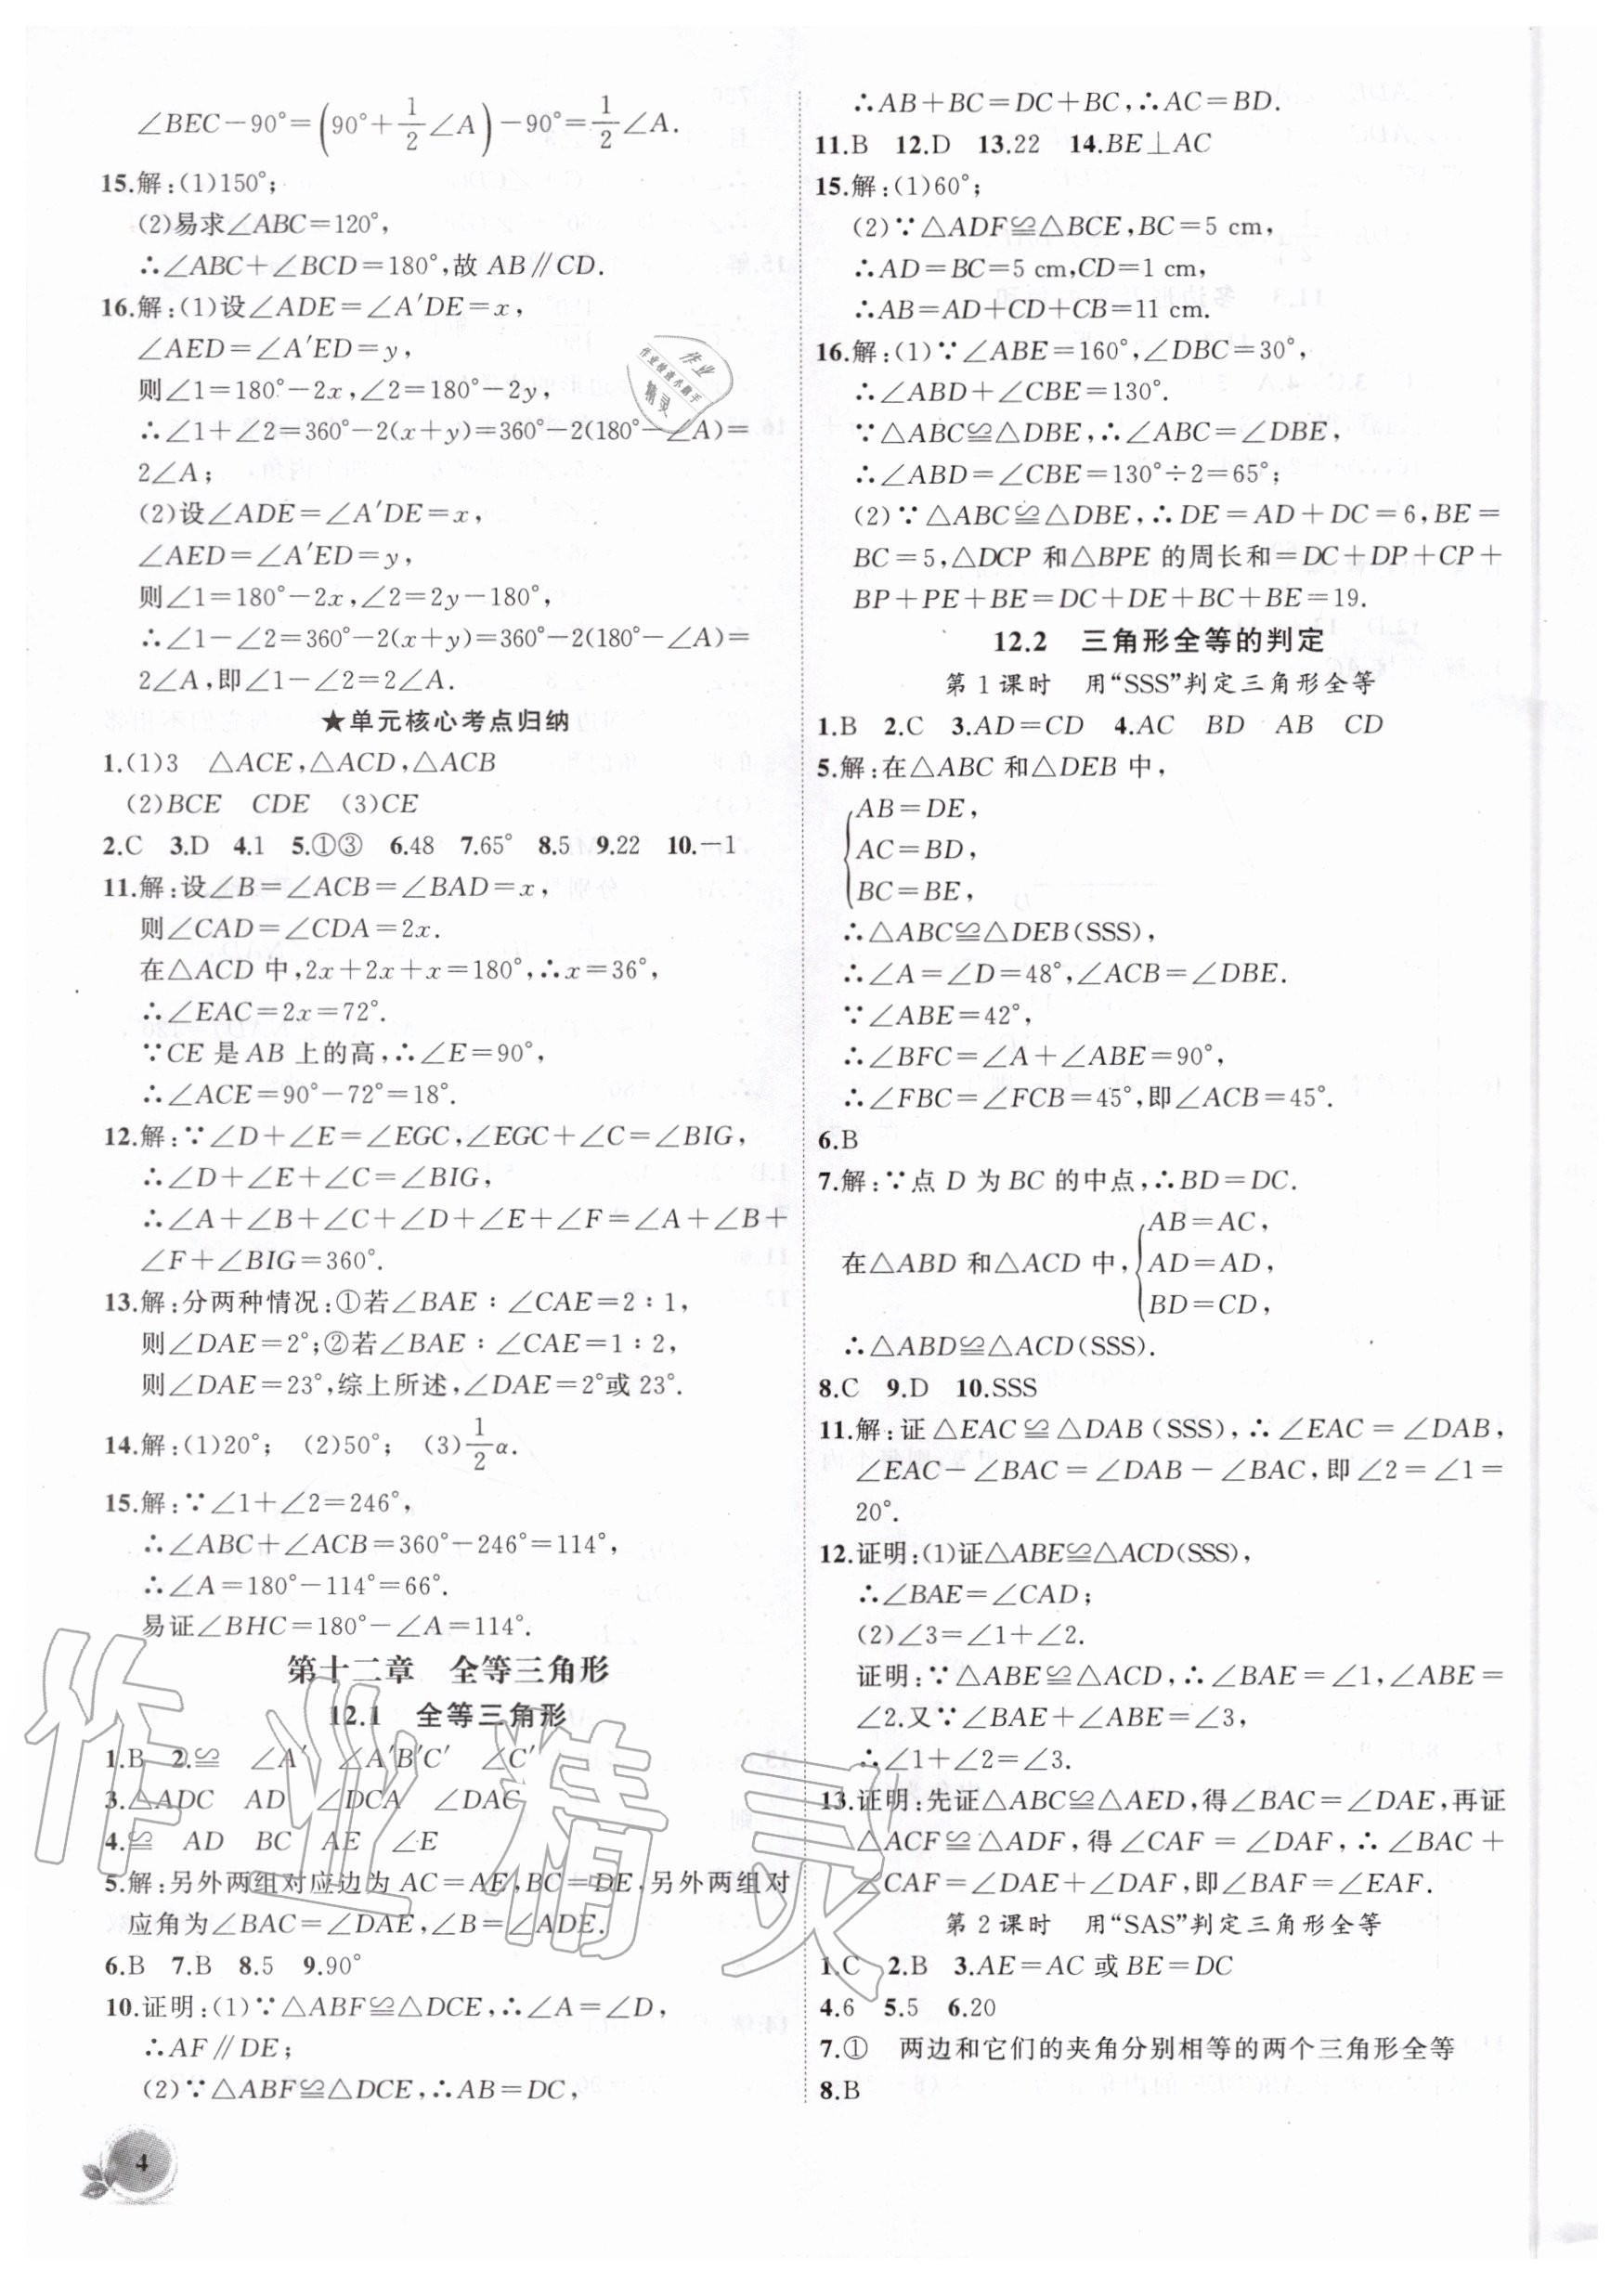 ∠BEC－90°＝(90°＋1/2∠A)－90°＝1/2∠A.
15.解:(1)150°;
(2)易求∠ABC＝120°,
∴∠ABC＋∠BCD＝180°,故 AB∥CD.
16.解:(1)设∠ADE＝∠A′DE＝x,
∠AED＝∠A′ED＝y,
则∠1＝180°－2x,∠2＝180°－2y,
∴∠1＋∠2＝360°－2(x＋y)＝360°－2(180°－∠A)＝
2∠A;
(2)设∠ADE＝∠A′DE＝x,
∠AED＝∠A′ED＝y,
则∠1＝180°－2x,∠2＝2y－180°,
∴∠1－∠2＝360°－2(x＋y)＝360°－2(180°－∠A)＝
2∠A,即∠1－∠2＝2∠A.
★单元核心考点归纳
1.(1)3 △ACE,△ACD,△ACB
(2)BCE CDE (3)CE
2.C 3.D 4.1 5.①③ 6.48 7.65° 8.5 9.22 10.－1
11.解:设∠B＝∠ACB＝∠BAD＝x,
则∠CAD＝∠CDA＝2x.
在△ACD 中,2x＋2x＋x＝180°,∴x＝36°,
∴∠EAC＝2x＝72°.
∵CE 是 AB 上的高,∴∠E＝90°,
∴∠ACE＝90°－72°＝18°.
12.解:∵∠D＋∠E＝∠EGC,∠EGC＋∠C＝∠BIG,
∴∠D＋∠E＋∠C＝∠BIG,
∴∠A＋∠B＋∠C＋∠D＋∠E＋∠F＝∠A＋∠B＋
∠F＋∠BIG＝360°.
13.解:分两种情况:①若∠BAE∶∠CAE＝2∶1,
则∠DAE＝2°;②若∠BAE∶∠CAE＝1∶2,
则∠DAE＝23°,综上所述,∠DAE＝2°或 23°.
14.解:(1)20°; (2)50°; (3)1/2α.
15.解:∵∠1＋∠2＝246°,
∴∠ABC＋∠ACB＝360°－246°＝114°,
∴∠A＝180°－114°＝66°.
易证∠BHC＝180°－∠A＝114°.
第十二章 全等三角形
12.1 全等三角形
1.B 2.≌ ∠A′ ∠A′B′C′ ∠C′
3.△ADC AD ∠DCA ∠DAC
4.≌ AD BC AE ∠E
5.解:另外两组对应边为 AC＝AE,BC＝DE,另外两组对
应角为∠BAC＝∠DAE,∠B＝∠ADE.
6.B 7.B 8.5 9.90°
10.证明:(1)∵△ABF≌△DCE,∴∠A＝∠D,
∴AF∥DE;
(2)∵△ABF≌△DCE,∴AB＝DC,
4
∴AB＋BC＝DC＋BC,∴AC＝BD.
11.B 12.D 13.22 14.BE⊥AC
15.解:(1)60°;
(2)∵△ADF≌△BCE,BC＝5 cm,
∴AD＝BC＝5 cm,CD＝1 cm,
∴AB＝AD＋CD＋CB＝11 cm.
16.解:(1)∵∠ABE＝160°,∠DBC＝30°,
∴∠ABD＋∠CBE＝130°.
∵△ABC≌△DBE,∴∠ABC＝∠DBE,
∴∠ABD＝∠CBE＝130°÷2＝65°;
(2)∵△ABC≌△DBE,∴DE＝AD＋DC＝6,BE＝
BC＝5,△DCP 和△BPE 的周长和＝DC＋DP＋CP＋
BP＋PE＋BE＝DC＋DE＋BC＋BE＝19.
12.2 三角形全等的判定
第 1 课时 用“SSS”判定三角形全等
1.B 2.C 3.AD＝CD 4.AC BD AB CD
5.解:在△ABC 和△DEB 中,
AB＝DE,
AC＝BD,
BC＝BE,
∴△ABC≌△DEB(SSS),
∴∠A＝∠D＝48°,∠ACB＝∠DBE.
∵∠ABE＝42°,
∴∠BFC＝∠A＋∠ABE＝90°,
∴∠FBC＝∠FCB＝45°,即∠ACB＝45°.
6.B
7.解:∵点 D 为 BC 的中点,∴BD＝DC.
AB＝AC,
在△ABD 和△ACD 中,AD＝AD,
BD＝CD,
∴△ABD≌△ACD(SSS).
8.C 9.D 10.SSS
11.解:证△EAC≌△DAB(SSS),∴∠EAC＝∠DAB,
∠EAC－∠BAC＝∠DAB－∠BAC,即∠2＝∠1＝
20°.
12.证明:(1)证△ABE≌△ACD(SSS),
∴∠BAE＝∠CAD;
(2)∠3＝∠1＋∠2.
证明:∵△ABE≌△ACD,∴∠BAE＝∠1,∠ABE＝
∠2.又∵∠BAE＋∠ABE＝∠3,
∴∠1＋∠2＝∠3.
13.证明:先证△ABC≌△AED,得∠BAC＝∠DAE,再证
△ACF≌△ADF,得∠CAF＝∠DAF,∴∠BAC＋
∠CAF＝∠DAE＋∠DAF,即∠BAF＝∠EAF.
第 2 课时 用“SAS”判定三角形全等
1.C 2.B 3.AE＝AC 或 BE＝DC
4.6 5.5 6.20
7.① 两边和它们的夹角分别相等的两个三角形全等
8.B
作业精灵